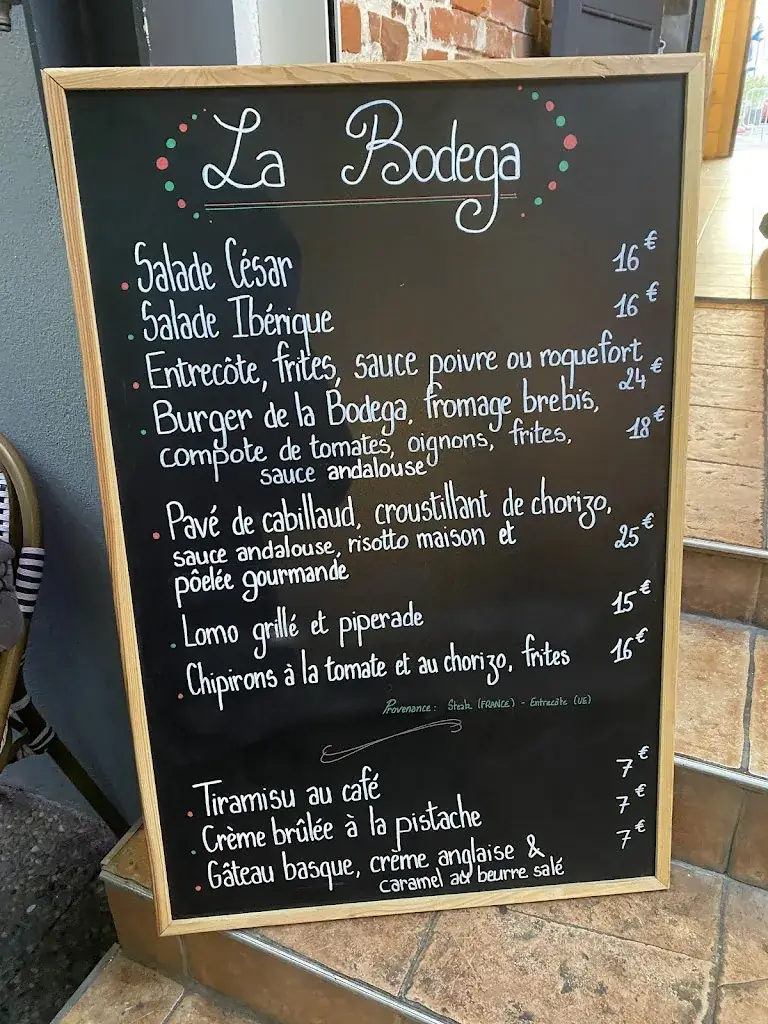 La Bodega
Salade César 16€
Salade Ibérique 16€
Entrecôte, frites, sauce poivre ou roquefort
24€
Burger de la Bodega, fromage brebis,
compote de tomates, oignons, frites, 18€
sauce andalouse
Pavé de cabillaud, croustillant de chorizo,
sauce andalouse, risotto maison et 25€
pôelée gourmande
Lomo grillé et piperade 15€
Chipirons à la tomate et au chorizo, frites 16€
Provenance : Steak (FRANCE) - Entrecôte (UE)
Tiramisu au café 7€
Crème brûlée à la pistache 7€
Gâteau basque, crème anglaise & 7€
caramel au beurre salé